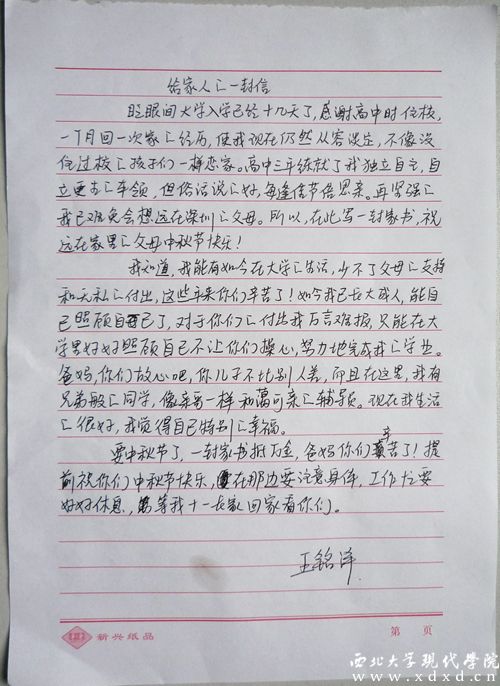 给家人的一封信
眨眼间大学入学已经十几天了,感谢高中时住校,
一个月回一次家的经历,使我现在仍然从容淡定,不像没
住过校的孩子们一样恋家。高中三年练就了我独立自主,自
立更生的本领,但俗话说的好,每逢佳节倍思亲。再坚强的
我已难免会想远在深圳的父母。所以,在此写一封家书,祝
远在家里的父母中秋节快乐!
我知道,我能有如今在大学的生活,少不了父母的支持
和无私的付出,这些年来你们辛苦了!如今我已长大成人,能自
己照顾自己了,对于你们的付出我万言难报,只能在大
学里好好照顾自己不让你们操心,努力地完成我的学业。
爸妈,你们放心吧,你儿子不比别人差,而且在这里,我有
兄弟般的同学,像亲哥一样和蔼可亲的辅导员。现在我生活
的很好,我觉得自己特别的幸福。
要中秋节了,一封家书抵万金,爸妈你们辛苦了!提
前祝你们中秋节快乐,在那边要注意身体,工作尤要
好好休息,等我十一长假回家看你们。
王铭洋
新兴纸品
第 页
西北大学现代学院
www.xdxd.cn